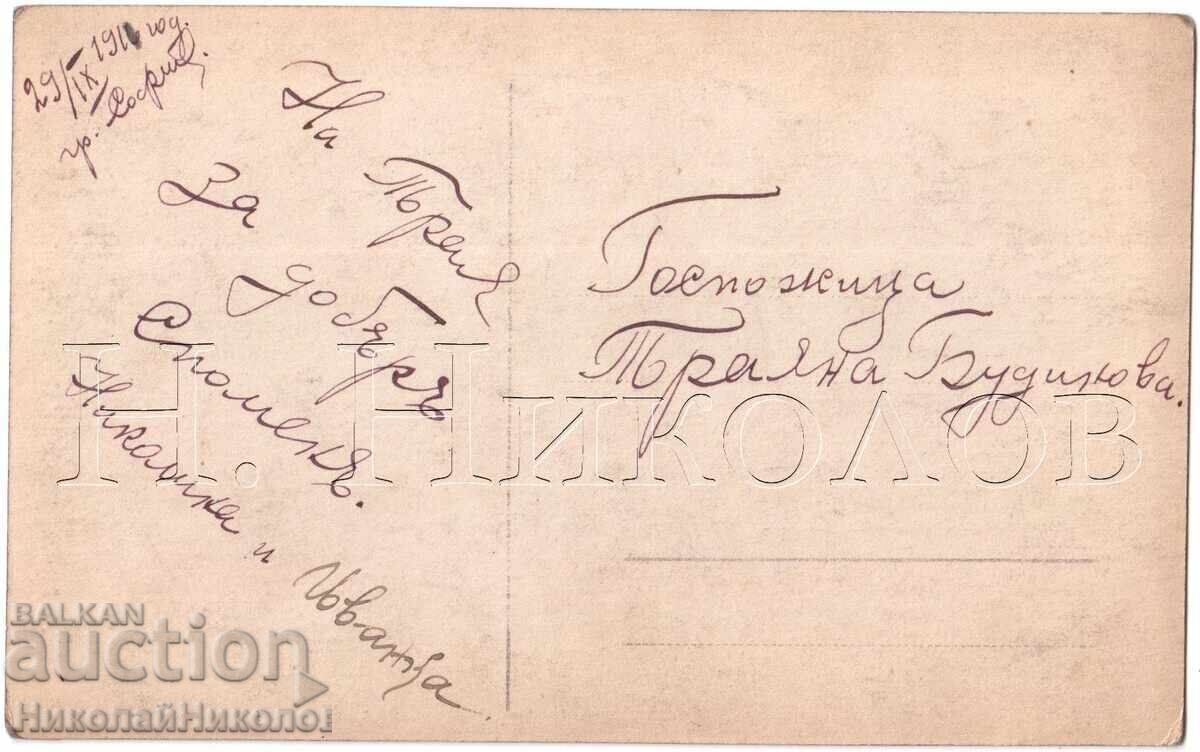 29/IX 191 год.
гр. София.
На Траяна
За
добъръ
Споменъ.
и Иванка
Госпожица
Траяна Будинова.
Н. НИКОЛОВ
BALKAN
auction
НиколайНиколов